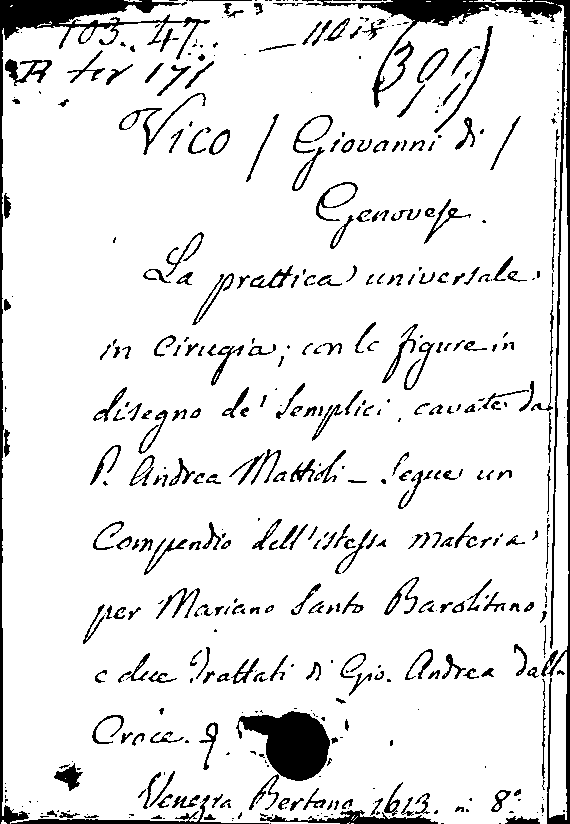 103. 47. 11018
R ter 171 (399)
Vico / Giovanni di /
Genovese.
La prattica universale
in Cirugia; con le figure in
disegno de' Semplici, cavate da
P. Andrea Mattioli - Segue un
Compendio dell'istessa materia
per Mariano Santo Barolitano,
e due Trattati di Gio. Andrea dalla
Croce.
Venezia, Bertano 1613. in 8º